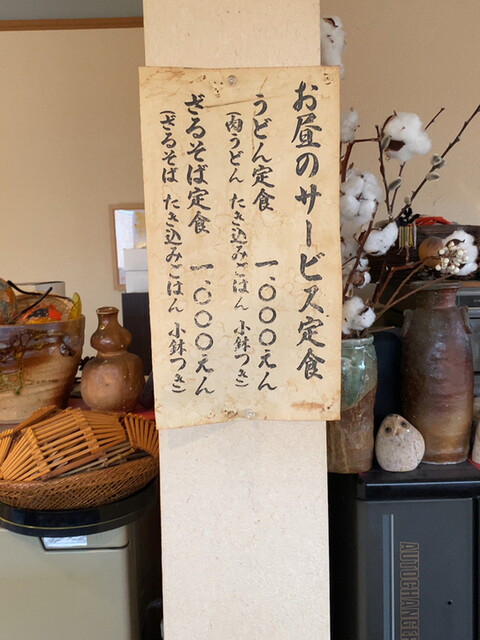 お昼のサービス定食
うどん定食 一、〇〇〇えん
(肉うどん たき込みごはん 小鉢つき)
ざるそば定食 一、〇〇〇えん
(ざるそば たき込みごはん 小鉢つき)
AUTOCHANGE